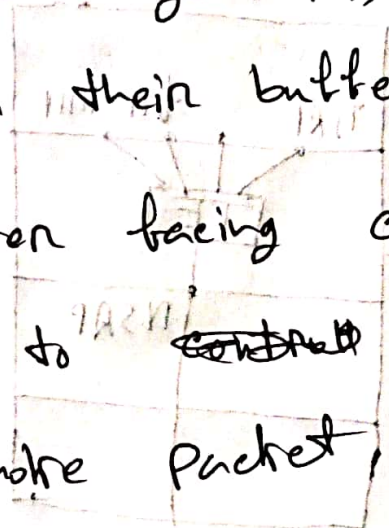 their buffe
en facing c
to
more packet